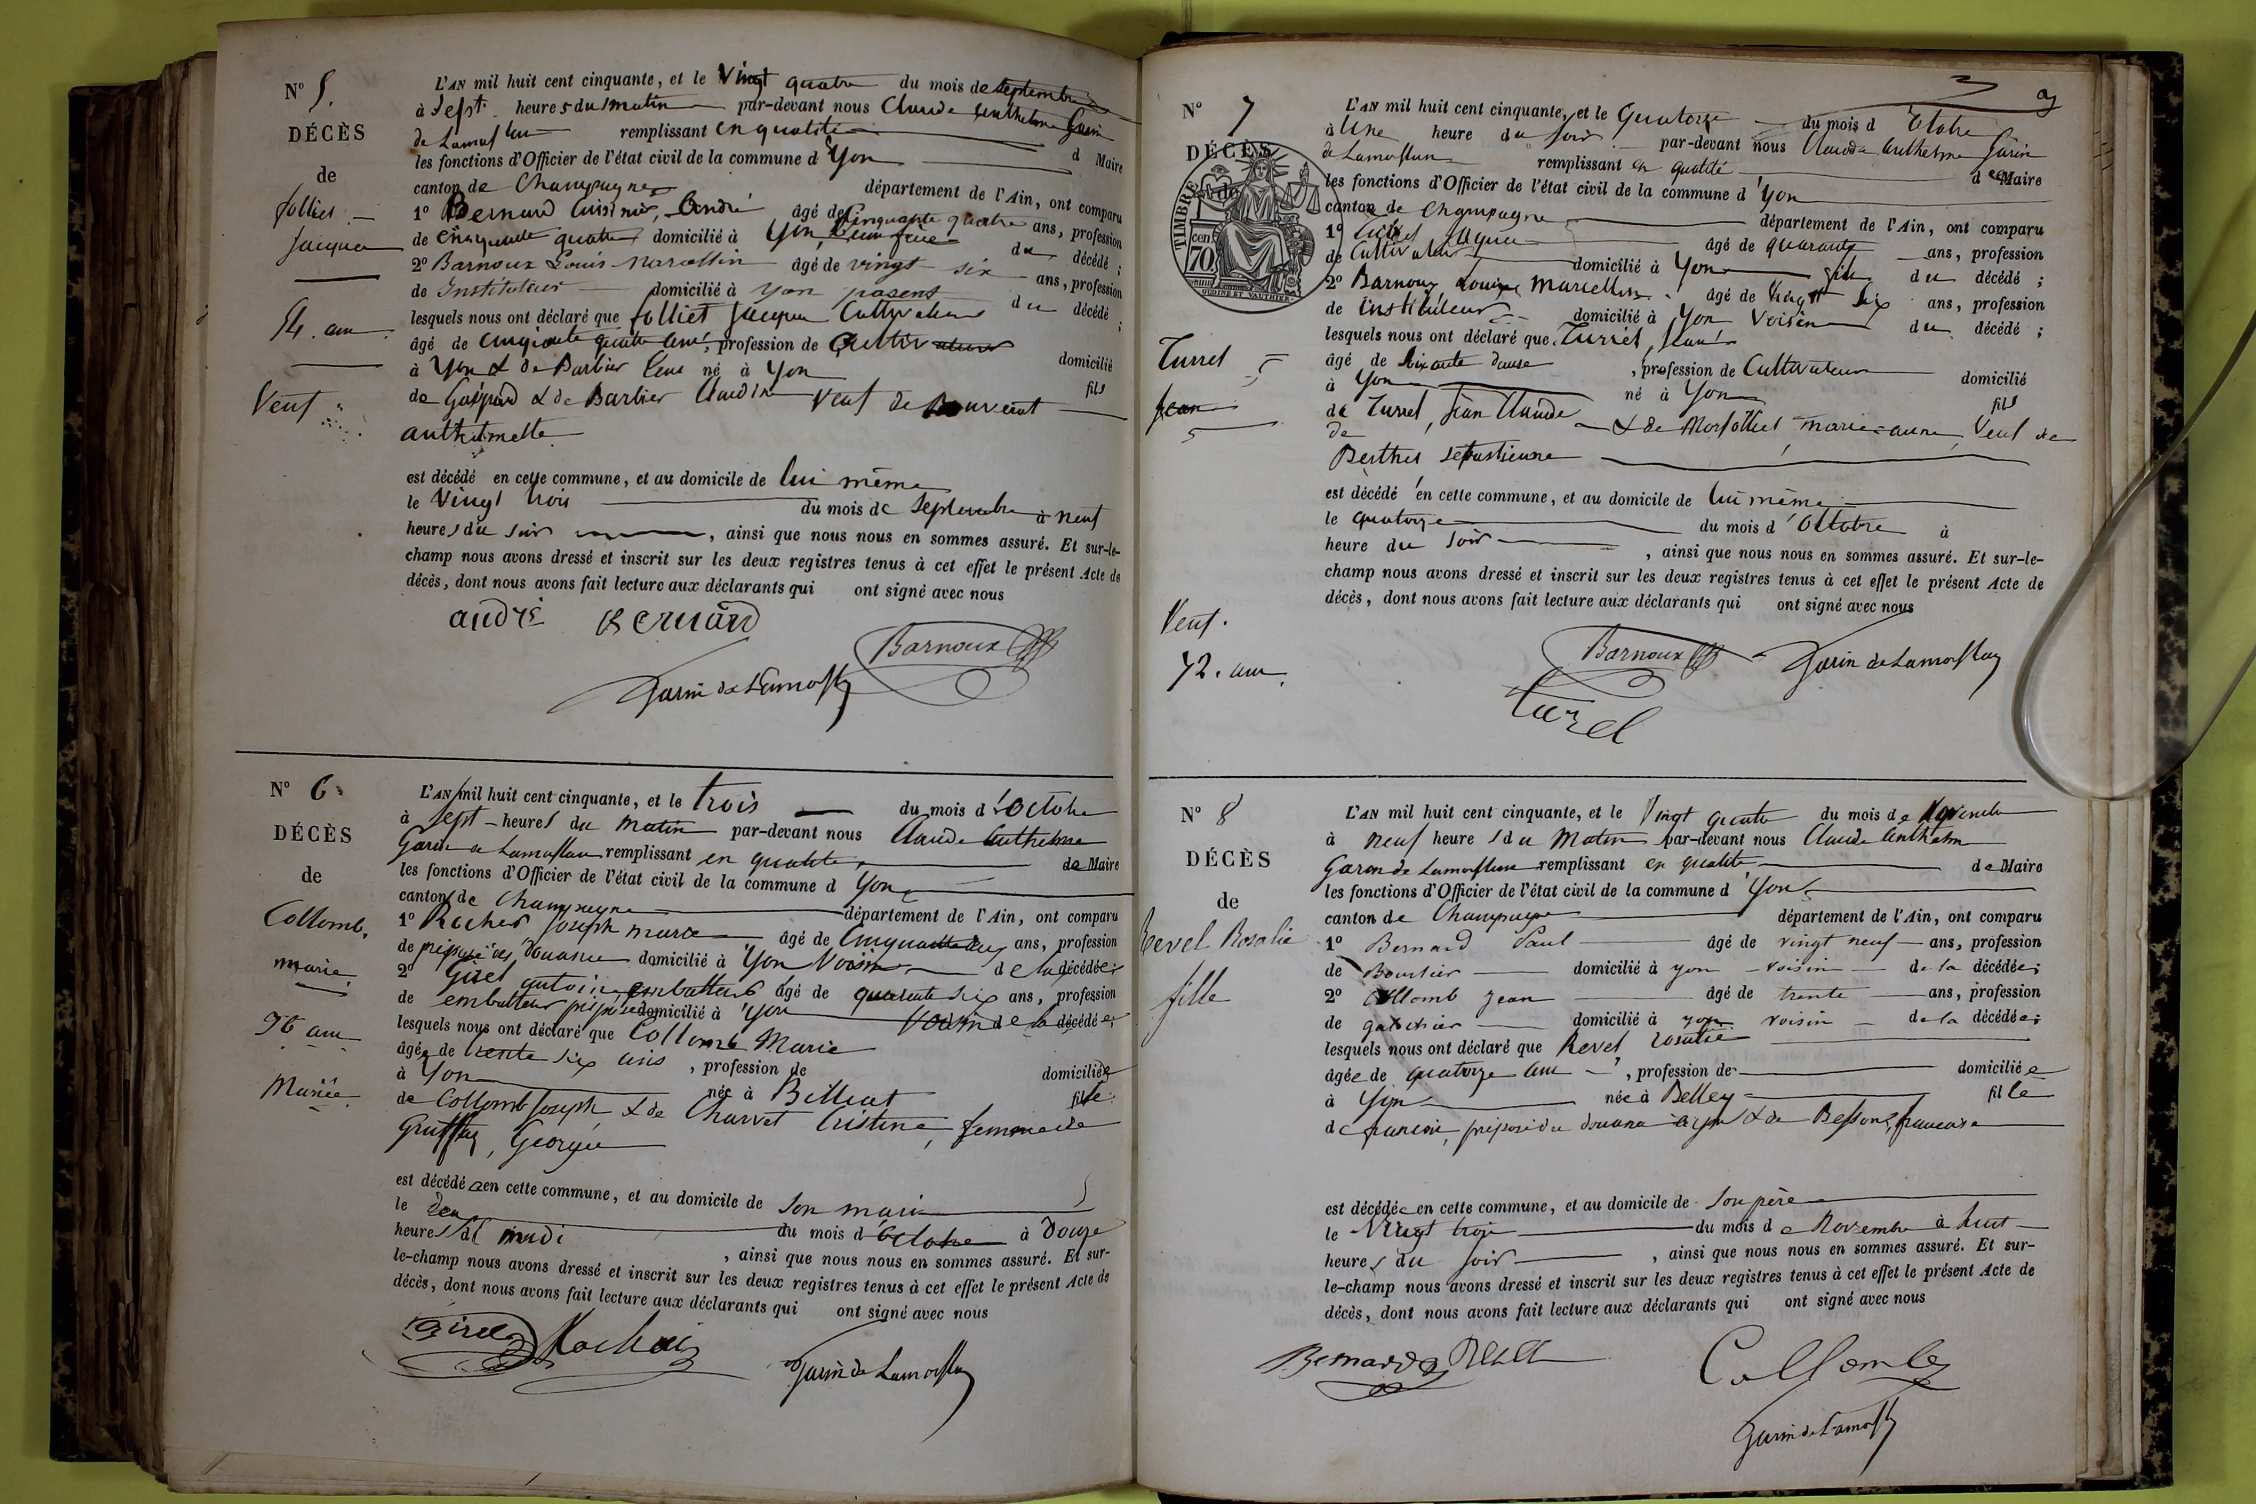 N° 5.
DÉCÈS
de
folliet
Jacques
54. ans
Veuf
L'AN mil huit cent cinquante, et le Vingt quatre du mois de septembre
à Sept heures du matin par-devant nous Claude Anthelme Garin
de Lamoflan remplissant en qualité d Maire
les fonctions d'Officier de l'état civil de la commune d'Yon
canton de Champagne département de l'Ain, ont comparu
1° Bernard André âgé de Cinquante quatre ans, profession
de cinquante quatre domicilié à Yon du décédé ;
2° Barnoux Louis Marcellin âgé de vingt six ans, profession
de Instituteur domicilié à yon du décédé ;
lesquels nous ont déclaré que folliet Jacques Cultivateur
âgé de cinquante quatre ans, profession de Cultivateur domicilié
à Yon né à Yon fils
de Gaspard & de Barbier Claudine Veuf de Bouvent
anthelmette
est décédé en cette commune, et au domicile de lui même
le Vingt trois du mois de Septembre à neuf
heures du soir , ainsi que nous nous en sommes assuré. Et sur-le-
champ nous avons dressé et inscrit sur les deux registres tenus à cet effet le présent Acte de
décès, dont nous avons fait lecture aux déclarants qui ont signé avec nous
andré Bernard
Barnoux
Garin de Lamofl
N° 6
DÉCÈS
de
Collomb,
marie
36 ans
Mariée
L'AN mil huit cent cinquante, et le trois du mois d'Octobre
à sept heures du Matin par-devant nous Claude Anthelme
Garin de Lamoflan remplissant en qualité de Maire
les fonctions d'Officier de l'état civil de la commune d Yon
canton de Champagne département de l'Ain, ont comparu
1° Rocher Joseph marie âgé de Cinquante ans, profession
de préposé des douanes domicilié à Yon Voisin de la décédée ;
2° Girel antoine embatteur âgé de quarante six ans, profession
de embatteur domicilié à Yon Voisin de la décédée ;
lesquels nous ont déclaré que Collomb Marie
âgée de trente six ans , profession de domiciliée
à Yon née à Billiat fille
de Collomb Joseph & de Charvet Cristine, femme de
Gruffaz, Georges
est décédée en cette commune, et au domicile de son mari
le deux du mois d'Octobre à Douze
heures de midi , ainsi que nous nous en sommes assuré. Et sur-
le-champ nous avons dressé et inscrit sur les deux registres tenus à cet effet le présent Acte de
décès, dont nous avons fait lecture aux déclarants qui ont signé avec nous
Girel Rochaix
Garin de Lamoflan
N° 7
DÉCÈS
de
TIMBRE
70
cen
OUDINÉ ET VAUTHIER
Turrel
Jean
Veuf.
72. ans
L'AN mil huit cent cinquante, et le Quatorze du mois d'Octobre
à Une heure du Soir par-devant nous Claude Anthelme Garin
de Lamoflan remplissant en qualité de Maire
les fonctions d'Officier de l'état civil de la commune d'Yon
canton de Champagne département de l'Ain, ont comparu
1° âgé de quarante ans, profession
de Cultivateur domicilié à Yon fils du décédé ;
2° Barnoux Louis Marcellin âgé de Vingt Six ans, profession
de instituteur domicilié à Yon Voisin du décédé ;
lesquels nous ont déclaré que Turrel, Jean
âgé de soixante douze , profession de Cultivateur domicilié
à Yon né à Yon fils
de Turrel, Jean Claude & de Morfolliet marie-anne, Veuf de
de
Berthet sebastienne
est décédé en cette commune, et au domicile de lui même
le quatorze du mois d'Octobre à
heure du soir , ainsi que nous nous en sommes assuré. Et sur-le-
champ nous avons dressé et inscrit sur les deux registres tenus à cet effet le présent Acte de
décès, dont nous avons fait lecture aux déclarants qui ont signé avec nous
Barnoux Garin de Lamoflan
Turel
N° 8
DÉCÈS
de
Revel Rosalie
fille
L'AN mil huit cent cinquante, et le Vingt quatre du mois de Novembre
à neuf heures du Matin par-devant nous Claude Anthelm
Garin de Lamoflan remplissant en qualité de Maire
les fonctions d'Officier de l'état civil de la commune d'Yon
canton de Champagne département de l'Ain, ont comparu
1° Bernard Paul âgé de vingt neuf ans, profession
de Bourlier domicilié à yon voisin de la décédée ;
2° Collomb Jean âgé de trente ans, profession
de domicilié à yon voisin de la décédée ;
lesquels nous ont déclaré que Revel rosalie
âgée de quatorze ans , profession de domiciliée
à Yon née à Belley fille
de francois, préposé des douane à yon & de Besson, francoise
est décédée en cette commune, et au domicile de Son père
le Vingt trois du mois de Novembre à huit
heures du soir , ainsi que nous nous en sommes assuré. Et sur-
le-champ nous avons dressé et inscrit sur les deux registres tenus à cet effet le présent Acte de
décès, dont nous avons fait lecture aux déclarants qui ont signé avec nous
Bernard
Collomb
Garin de Lamofl